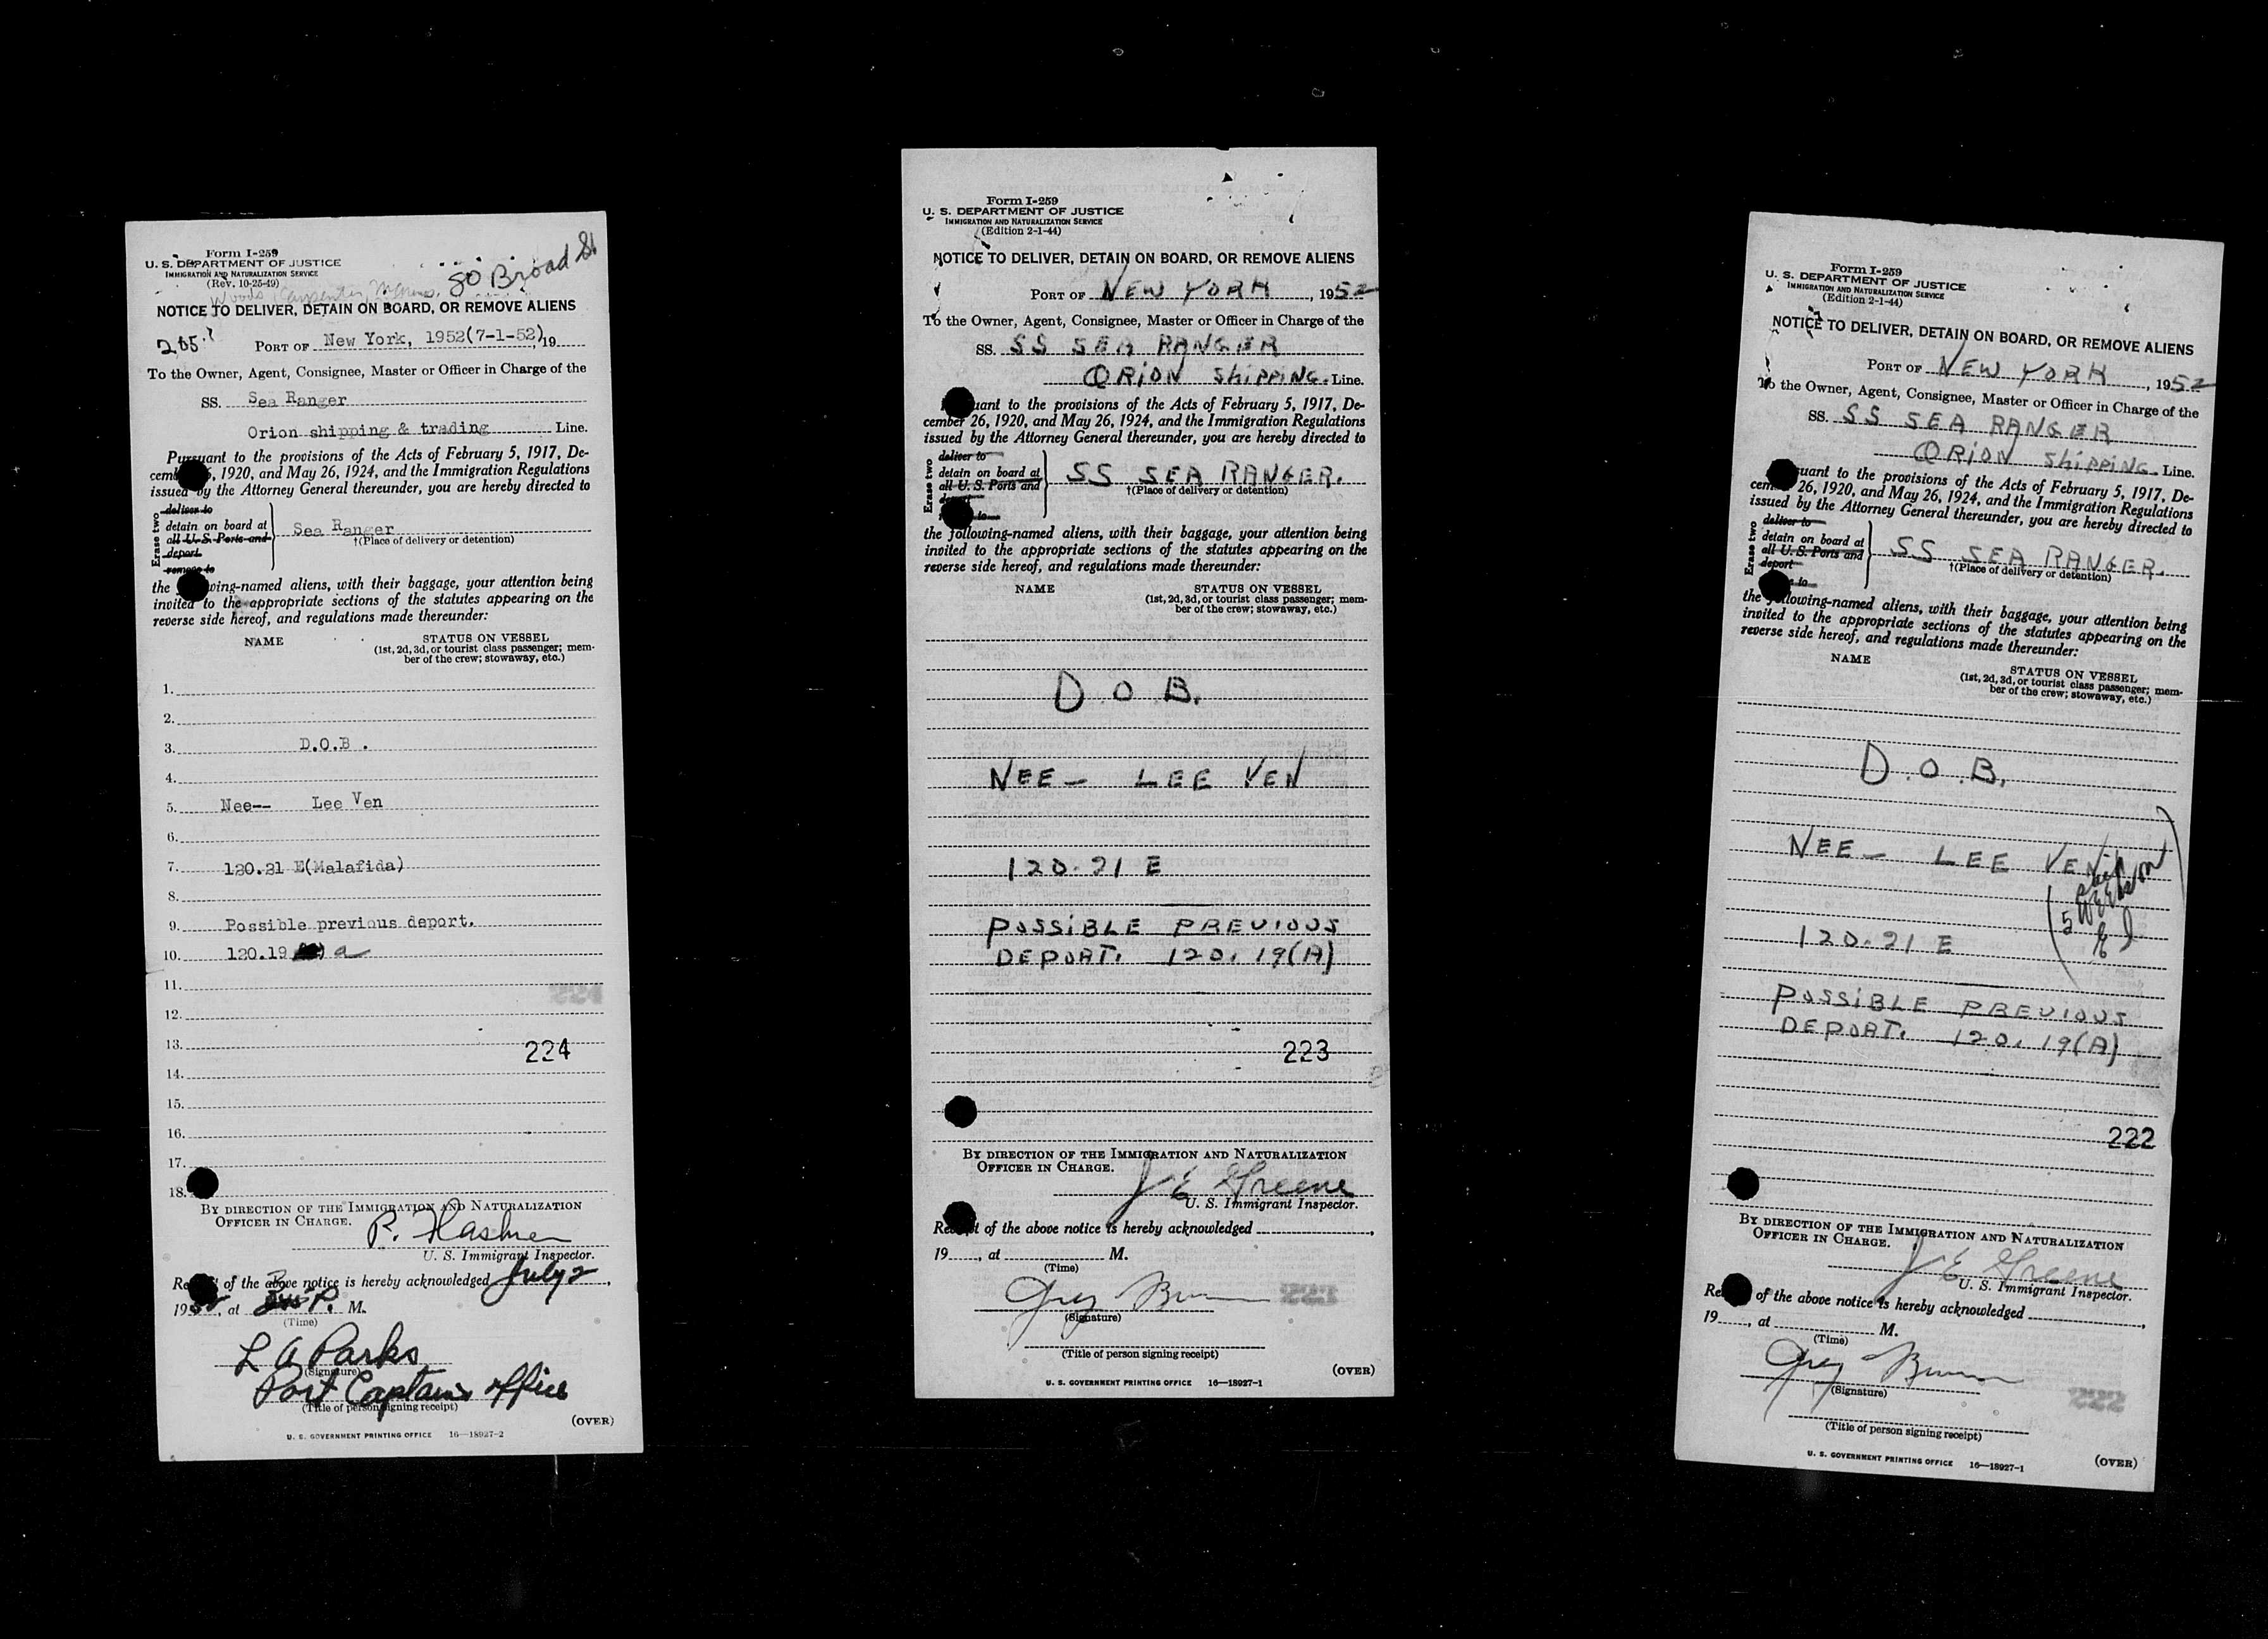 Form I-259
U. S. DEPARTMENT OF JUSTICE
IMMIGRATION AND NATURALIZATION SERVICE
(Rev. 10-25-49)
80 Broad St
NOTICE TO DELIVER, DETAIN ON BOARD, OR REMOVE ALIENS
PORT OF New York, 1952(7-1-52), 19
To the Owner, Agent, Consignee, Master or Officer in Charge of the
SS. Sea Ranger
Orion shipping & trading Line.
Pursuant to the provisions of the Acts of February 5, 1917, De-
cemb 6, 1920, and May 26, 1924, and the Immigration Regulations
issued by the Attorney General thereunder, you are hereby directed to
Erase two
deliver to
detain on board at
all U. S. Ports and
deport
remove to
Sea Ranger
†(Place of delivery or detention)
the wing-named aliens, with their baggage, your attention being
invited to the appropriate sections of the statutes appearing on the
reverse side hereof, and regulations made thereunder:
NAME STATUS ON VESSEL
(1st, 2d, 3d, or tourist class passenger; mem-
ber of the crew; stowaway, etc.)
1.
2.
3. D.O.B .
4.
5. Nee-- Lee Ven
6.
7. 120.21 E(Malafida)
8.
9. Possible previous deport.
10. 120.19 a
11.
12.
13. 224
14.
15.
16.
17.
18.
BY DIRECTION OF THE IMMIGRATION AND NATURALIZATION
OFFICER IN CHARGE.
P.
U. S. Immigrant Inspector.
Re of the above notice is hereby acknowledged July 2,
1952, at P. M.
(Time)
L A Parks
(Signature)
Port Captains office
(Title of person signing receipt)
(OVER)
U. S. GOVERNMENT PRINTING OFFICE 16—18927-2
Form I-259
U. S. DEPARTMENT OF JUSTICE
IMMIGRATION AND NATURALIZATION SERVICE
(Edition 2-1-44)
NOTICE TO DELIVER, DETAIN ON BOARD, OR REMOVE ALIENS
PORT OF NEW YORK, 1952
To the Owner, Agent, Consignee, Master or Officer in Charge of the
SS. SS SEA RANGER
ORION SHIPPING. Line.
uant to the provisions of the Acts of February 5, 1917, De-
cember 26, 1920, and May 26, 1924, and the Immigration Regulations
issued by the Attorney General thereunder, you are hereby directed to
Erase two
deliver to
detain on board at
all U. S. Ports and
deport
to
SS SEA RANGER.
†(Place of delivery or detention)
the following-named aliens, with their baggage, your attention being
invited to the appropriate sections of the statutes appearing on the
reverse side hereof, and regulations made thereunder:
NAME STATUS ON VESSEL
(1st, 2d, 3d, or tourist class passenger; mem-
ber of the crew; stowaway, etc.)
D.O.B.
NEE — LEE VEN
120.21 E
POSSIBLE PREVIOUS
DEPORT. 120.19(A)
223
BY DIRECTION OF THE IMMIGRATION AND NATURALIZATION
OFFICER IN CHARGE.
J E Greene
U. S. Immigrant Inspector.
Receipt of the above notice is hereby acknowledged ,
19 , at M.
(Time)
(Signature)
(Title of person signing receipt)
(OVER)
U. S. GOVERNMENT PRINTING OFFICE 16—18927-1
Form I-259
U. S. DEPARTMENT OF JUSTICE
IMMIGRATION AND NATURALIZATION SERVICE
(Edition 2-1-44)
NOTICE TO DELIVER, DETAIN ON BOARD, OR REMOVE ALIENS
PORT OF NEW YORK, 1952
To the Owner, Agent, Consignee, Master or Officer in Charge of the
SS. SS SEA RANGER
ORION SHIPPING. Line.
suant to the provisions of the Acts of February 5, 1917, De-
cem 26, 1920, and May 26, 1924, and the Immigration Regulations
issued by the Attorney General thereunder, you are hereby directed to
Erase two
deliver to
detain on board at
all U. S. Ports and
deport
to
SS SEA RANGER.
†(Place of delivery or detention)
the following-named aliens, with their baggage, your attention being
invited to the appropriate sections of the statutes appearing on the
reverse side hereof, and regulations made thereunder:
NAME STATUS ON VESSEL
(1st, 2d, 3d, or tourist class passenger; mem-
ber of the crew; stowaway, etc.)
D.O.B.
NEE — LEE VEN
120.21 E
POSSIBLE PREVIOUS
DEPORT. 120.19(A)
222
BY DIRECTION OF THE IMMIGRATION AND NATURALIZATION
OFFICER IN CHARGE.
J E Greene
U. S. Immigrant Inspector.
Re of the above notice is hereby acknowledged ,
19 , at M.
(Time)
(Signature)
(Title of person signing receipt)
(OVER)
U. S. GOVERNMENT PRINTING OFFICE 16—18927-1